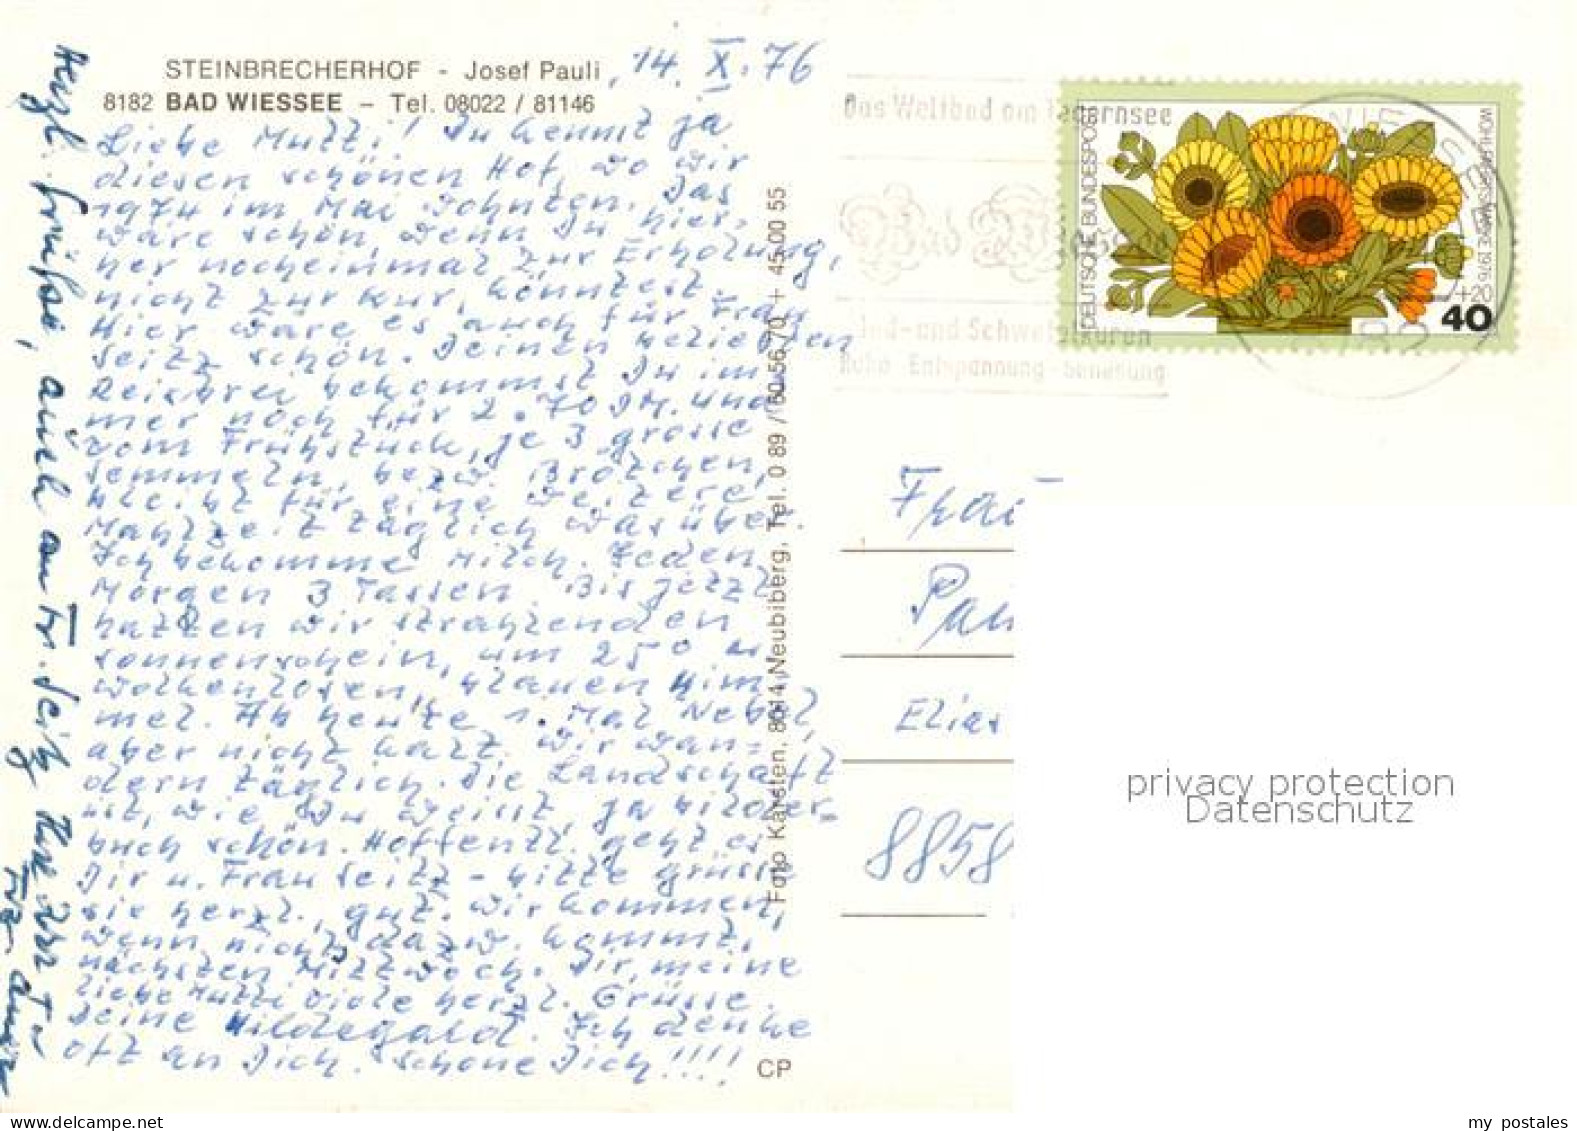 STEINBRECHERHOF - Josef Pauli, 14. X. 76
8182 BAD WIESSEE – Tel. 08022 / 81146
Liebe Mutti! Du kennst ja
diesen schönen Hof, wo wir
1974 im Mai wohnten. Das
wäre schön, wenn Du hier-
her nocheinmal zur Erholung,
nicht zur Kur, könntest.
Hier wäre es auch für Frau
Seitz schön. Deinen geliebten
Reisbrei bekommst Du im-
mer noch für 2.70 DM. und
vom Frühstück, je 3 grosse
Semmeln, bezw. Brötchen,
bleibt für eine weitere
Mahlzeit täglich was über.
Ich bekomme Milch. Jeden
Morgen 3 Tassen. Bis jetzt
hatten wir strahlenden
Sonnenschein, um 25° u.
wolkenlosen, blauen Him-
mel. Ab heute 1. Mal Nebel,
aber nicht kalt. Wir wan-
dern täglich. Die Landschaft
ist, wie Du weisst, ja bilder-
buch schön. Hoffentl. geht es
Dir u. Frau Seitz - bitte grüsse
sie herzl., gut. Wir kommen,
wenn nichts dazw. kommt,
nächsten Mittwoch. Dir, meine
liebe Mutti viele herzl. Grüsse
Deine Hildegard. Ich denke
oft an Dich. Schone Dich!!!!
Herzl. Grüße, auch an Fr. Seitz
Foto Karsten, 8014 Neubiberg, Tel. 0 89 / 60 56 70 + 45 00 55
CP
Das Weltbad am Tegernsee
Bad Wiessee
Jod- und Schwefelkuren
Ruhe · Entspannung · Genesung
DEUTSCHE BUNDESPOST
WOHLFAHRTSMARKE 1976
+20
40
Frau
Elias
8858
privacy protection
Datenschutz
my postales